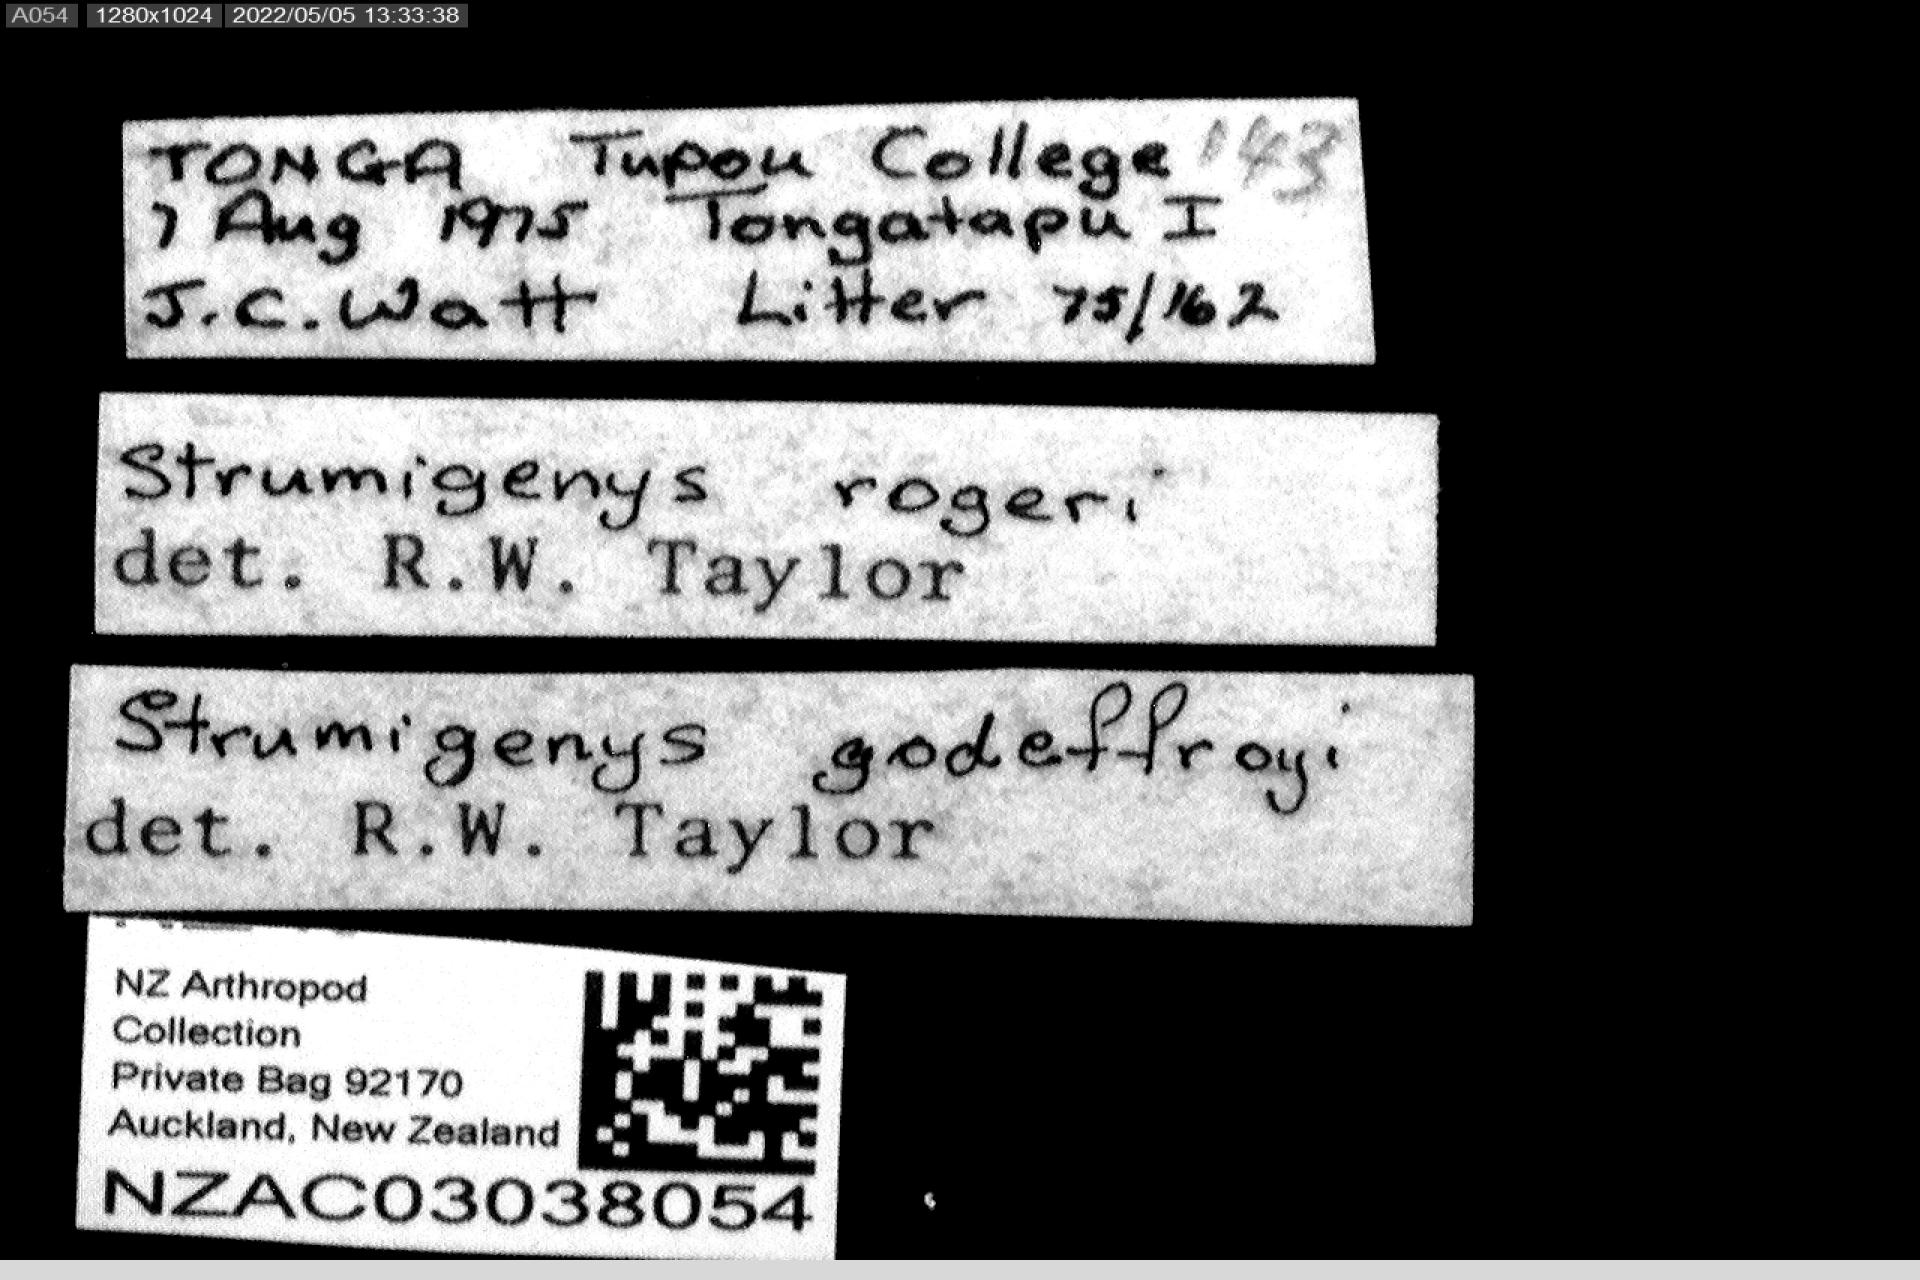 A054 1280x1024 2022/05/05 13:33:38
TONGA Tupou College 143
7 Aug 1975 Tongatapu I
J.C. Watt Litter 75/162
Strumigenys rogeri
det. R.W. Taylor
Strumigenys godeffroyi
det. R.W. Taylor
NZ Arthropod
Collection
Private Bag 92170
Auckland, New Zealand
NZAC03038054